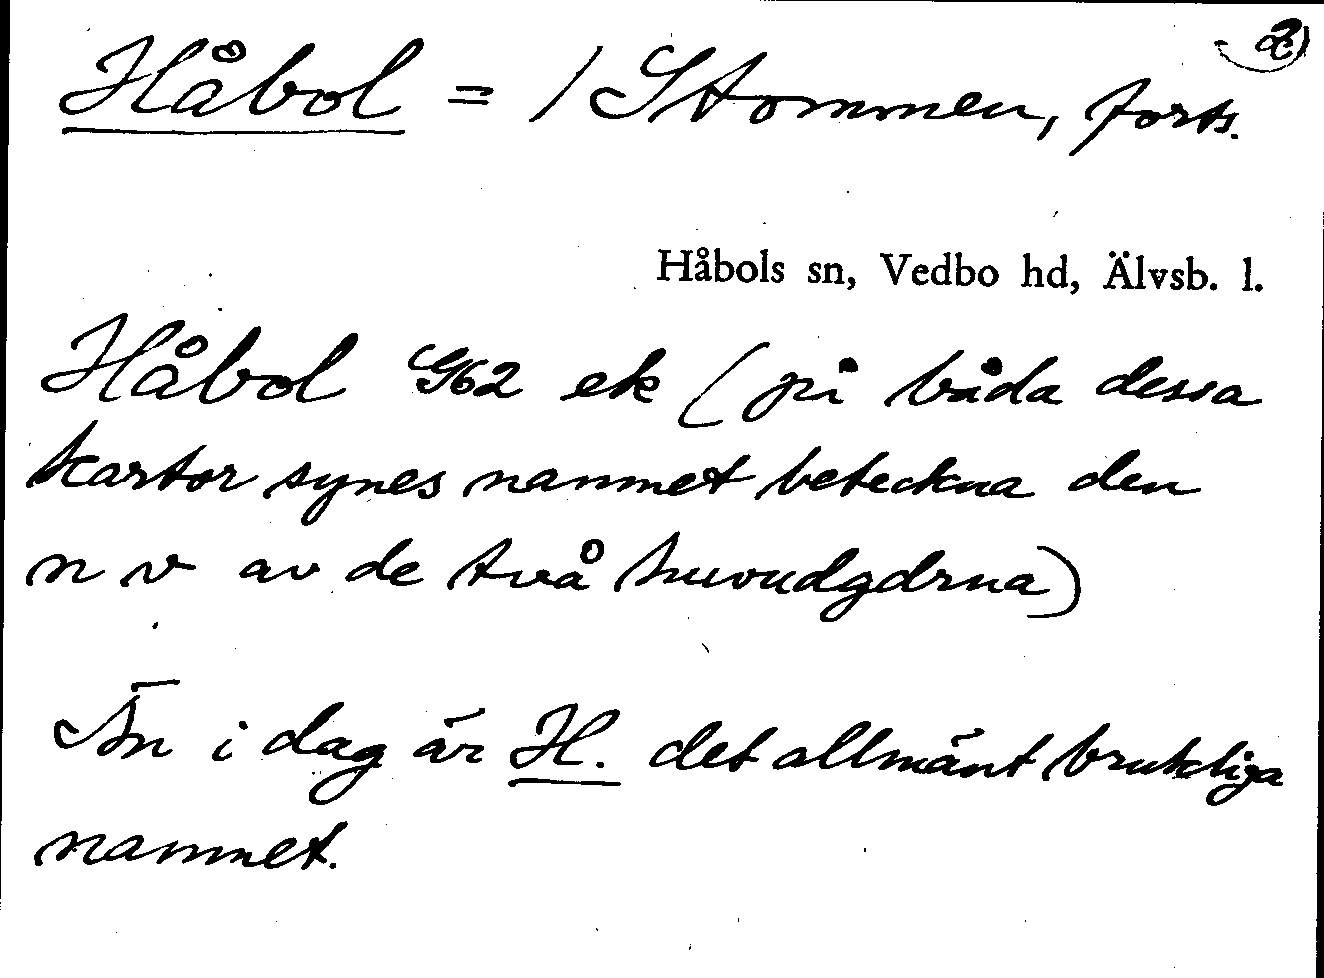 2)
Håbol = /Stommen, forts.
Håbols sn, Vedbo hd, Älvsb. l.
Håbol G62 ek (på båda dessa
kartor synes namnet beteckna den
n v av de två huvudgdrna)
Än i dag är H. det allmänt brukliga
namnet.